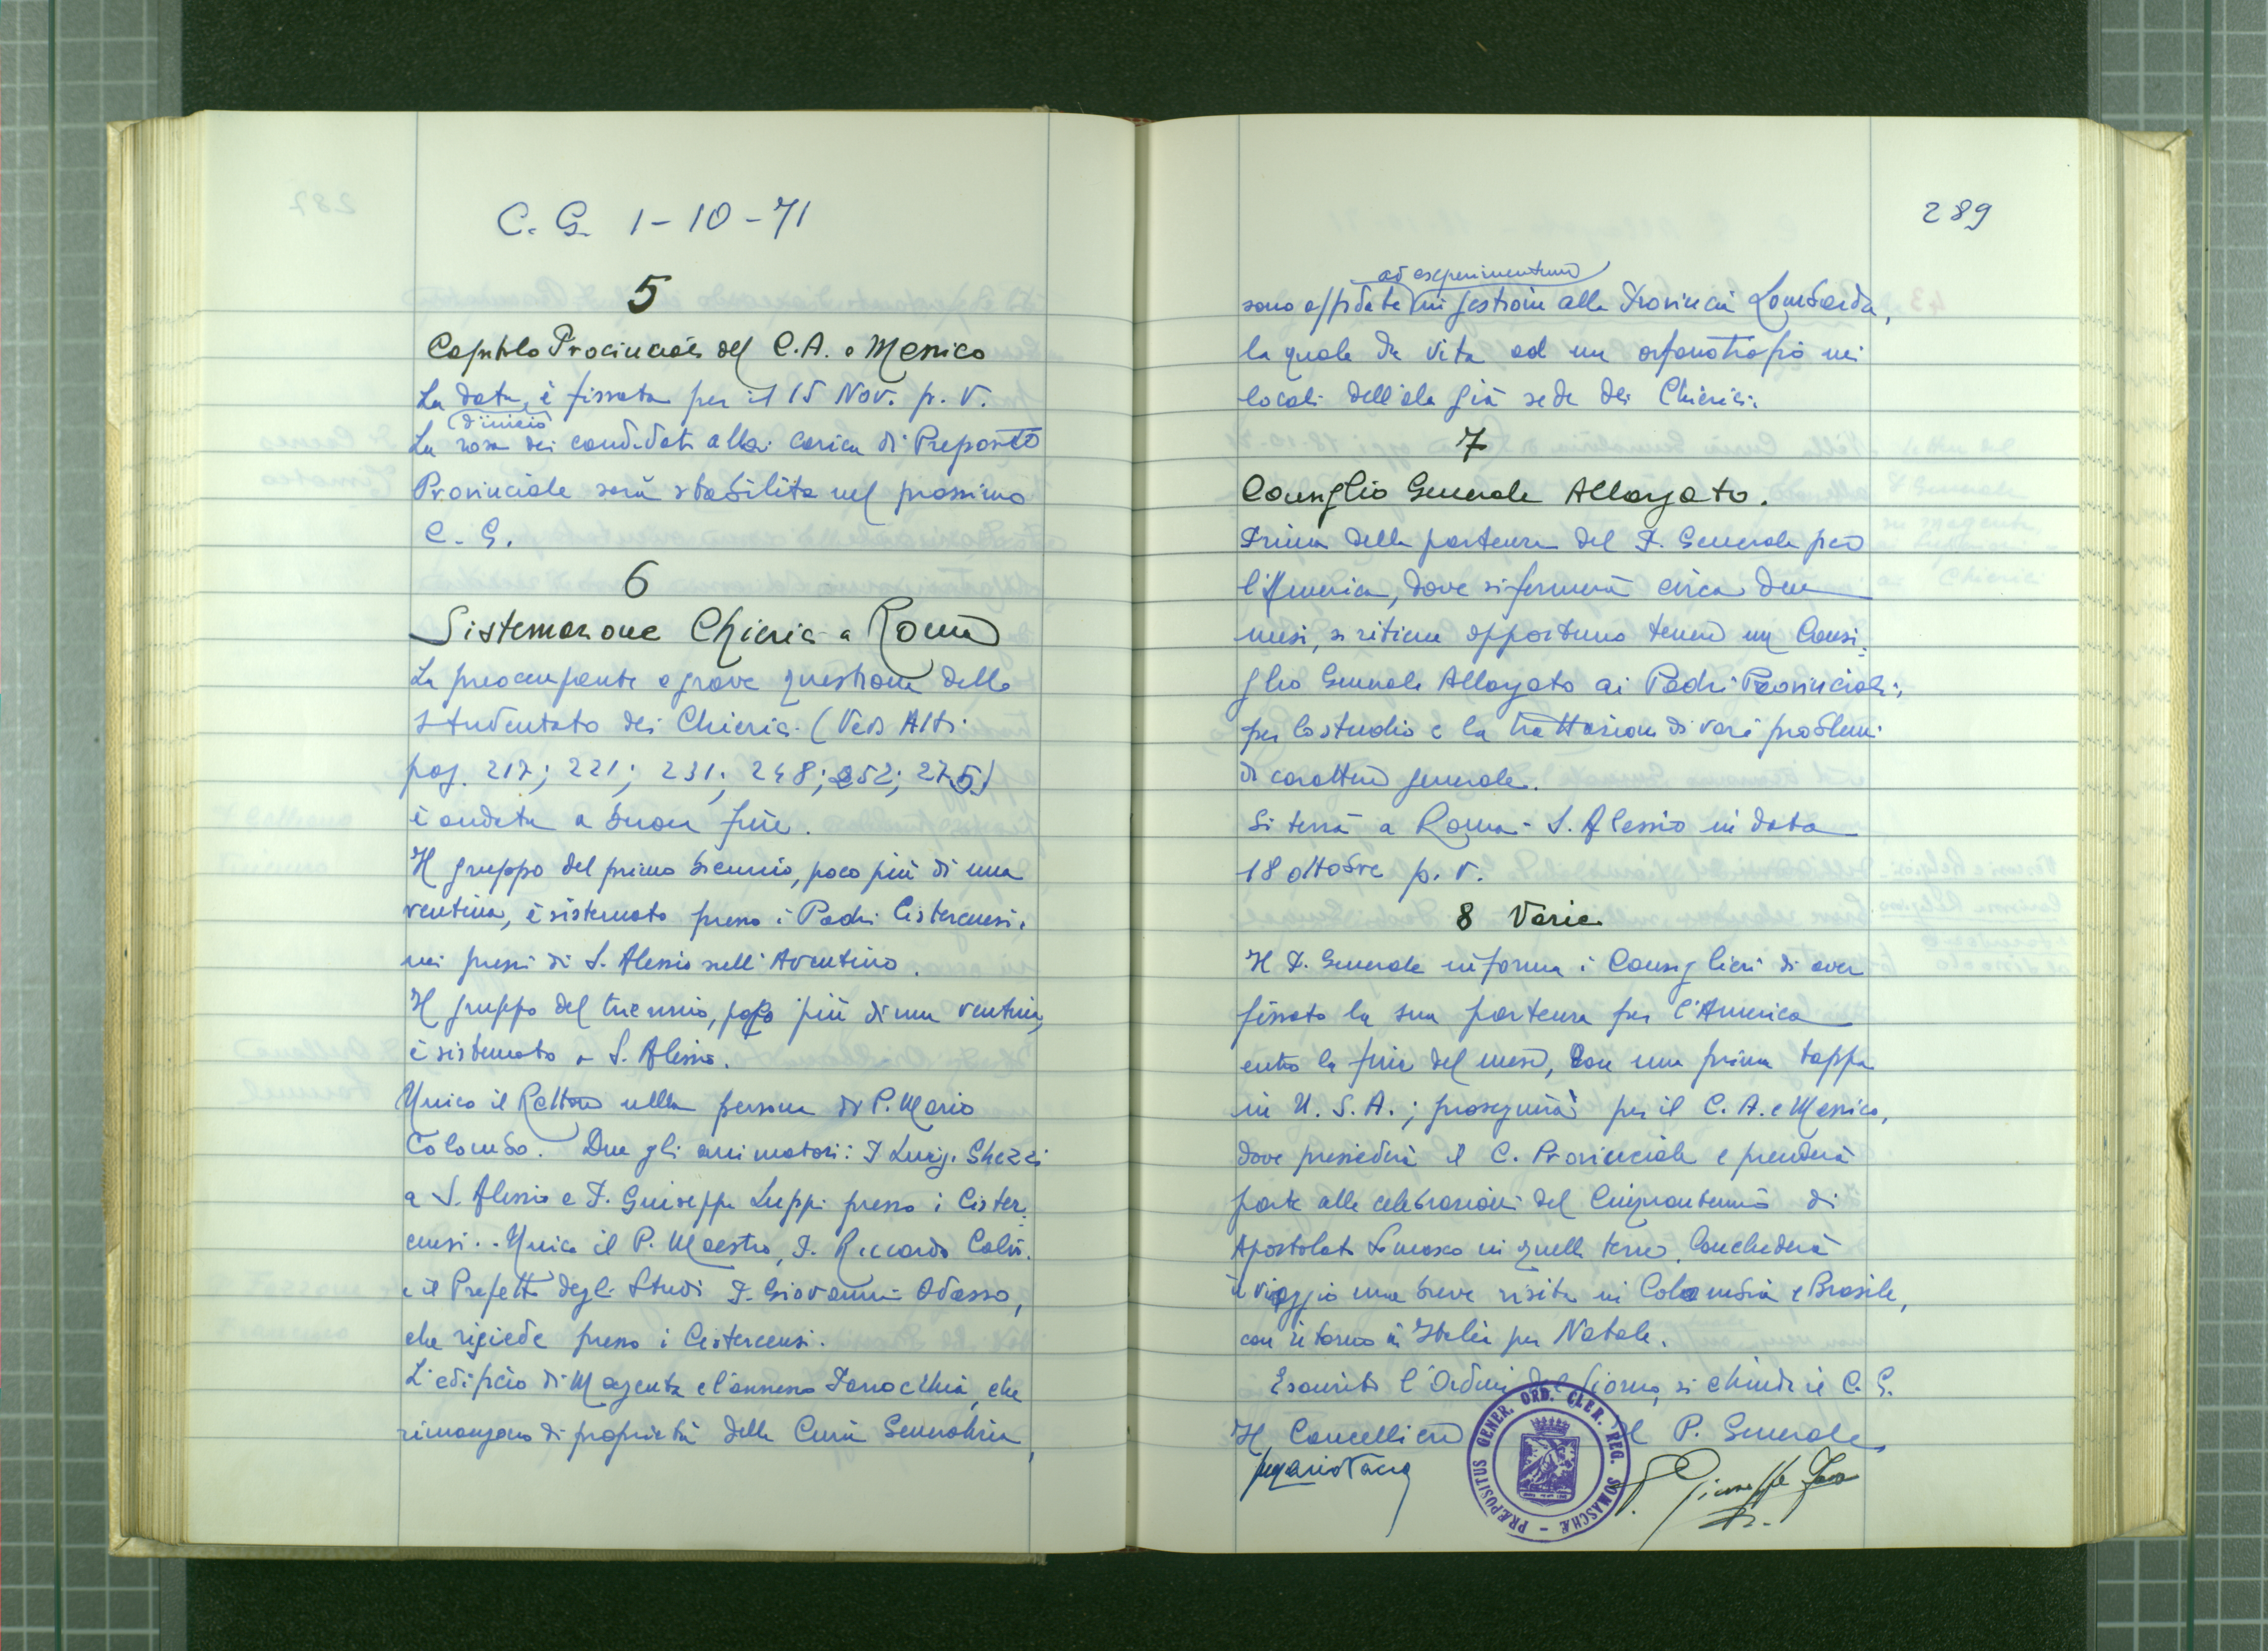 C. G. 1-10-71
5
Capitolo Provinciale del C.A. e Messico
La data d'inizio è fissata per il 15 Nov. p. v.
La rosa dei candidati alla carica di Preposito
Provinciale sarà stabilita nel prossimo
C. G.
6
Sistemazione Chierici a Roma
La preoccupante e grave questione dello
Studentato dei Chierici (Vedi Atti
pag. 217; 221; 231; 248; 252; 275)
è andata a buon fine.
Il gruppo del primo biennio, poco più di una
ventina, è sistemato presso i Padri Cistercensi,
nei pressi di S. Alessio sull'Aventino.
Il gruppo del triennio, poco più di una ventina,
è sistemato a S. Alessio.
Unico il Rettore nella persona di P. Mario
Colombo. Due gli animatori: P. Luigi Ghezzi
a S. Alessio e P. Giuseppe Luppi presso i Cister-
censi. Unico il P. Maestro, P. Riccardo
e il Prefetto degli Studi P. Giovanni Odasso,
che risiede presso i Cistercensi.
L'edificio di Magenta e l'annessa Parrocchia, che
rimangono di proprietà della Curia Generalizia,
289
sono affidate ad experimentum in gestione alla Provincia Lombarda,
la quale dà vita ad un orfanotrofio nei
locali dell'ala già sede dei Chierici.
7
Consiglio Generale Allargato.
Prima della partenza del P. Generale per
l'America, dove si fermerà circa due
mesi, si ritiene opportuno tenere un Consi-
glio Generale Allargato ai Padri Provinciali,
per lo studio e la trattazione di vari problemi
di carattere generale.
Si terrà a Roma - S. Alessio in data
18 ottobre p. v.
8 Varie
Il P. Generale informa i Consiglieri di aver
fissato la sua partenza per l'America
entro la fine del mese, con una prima tappa
in U. S. A.; proseguirà per il C. A. e Messico,
dove presiederà il C. Provinciale e prenderà
parte alle celebrazioni del Cinquantennio di
Apostolato Somasco in quelle terre. Concluderà
il viaggio una breve visita in Colombia e Brasile,
con ritorno in Italia per Natale.
Esaurito l'Ordine del Giorno, si chiude il C. G.
Il Cancelliere Il P. Generale
P. Giuseppe Fava
PRÆPOSITUS GENER. ORD. CLER. REG. SOMASCHÆ